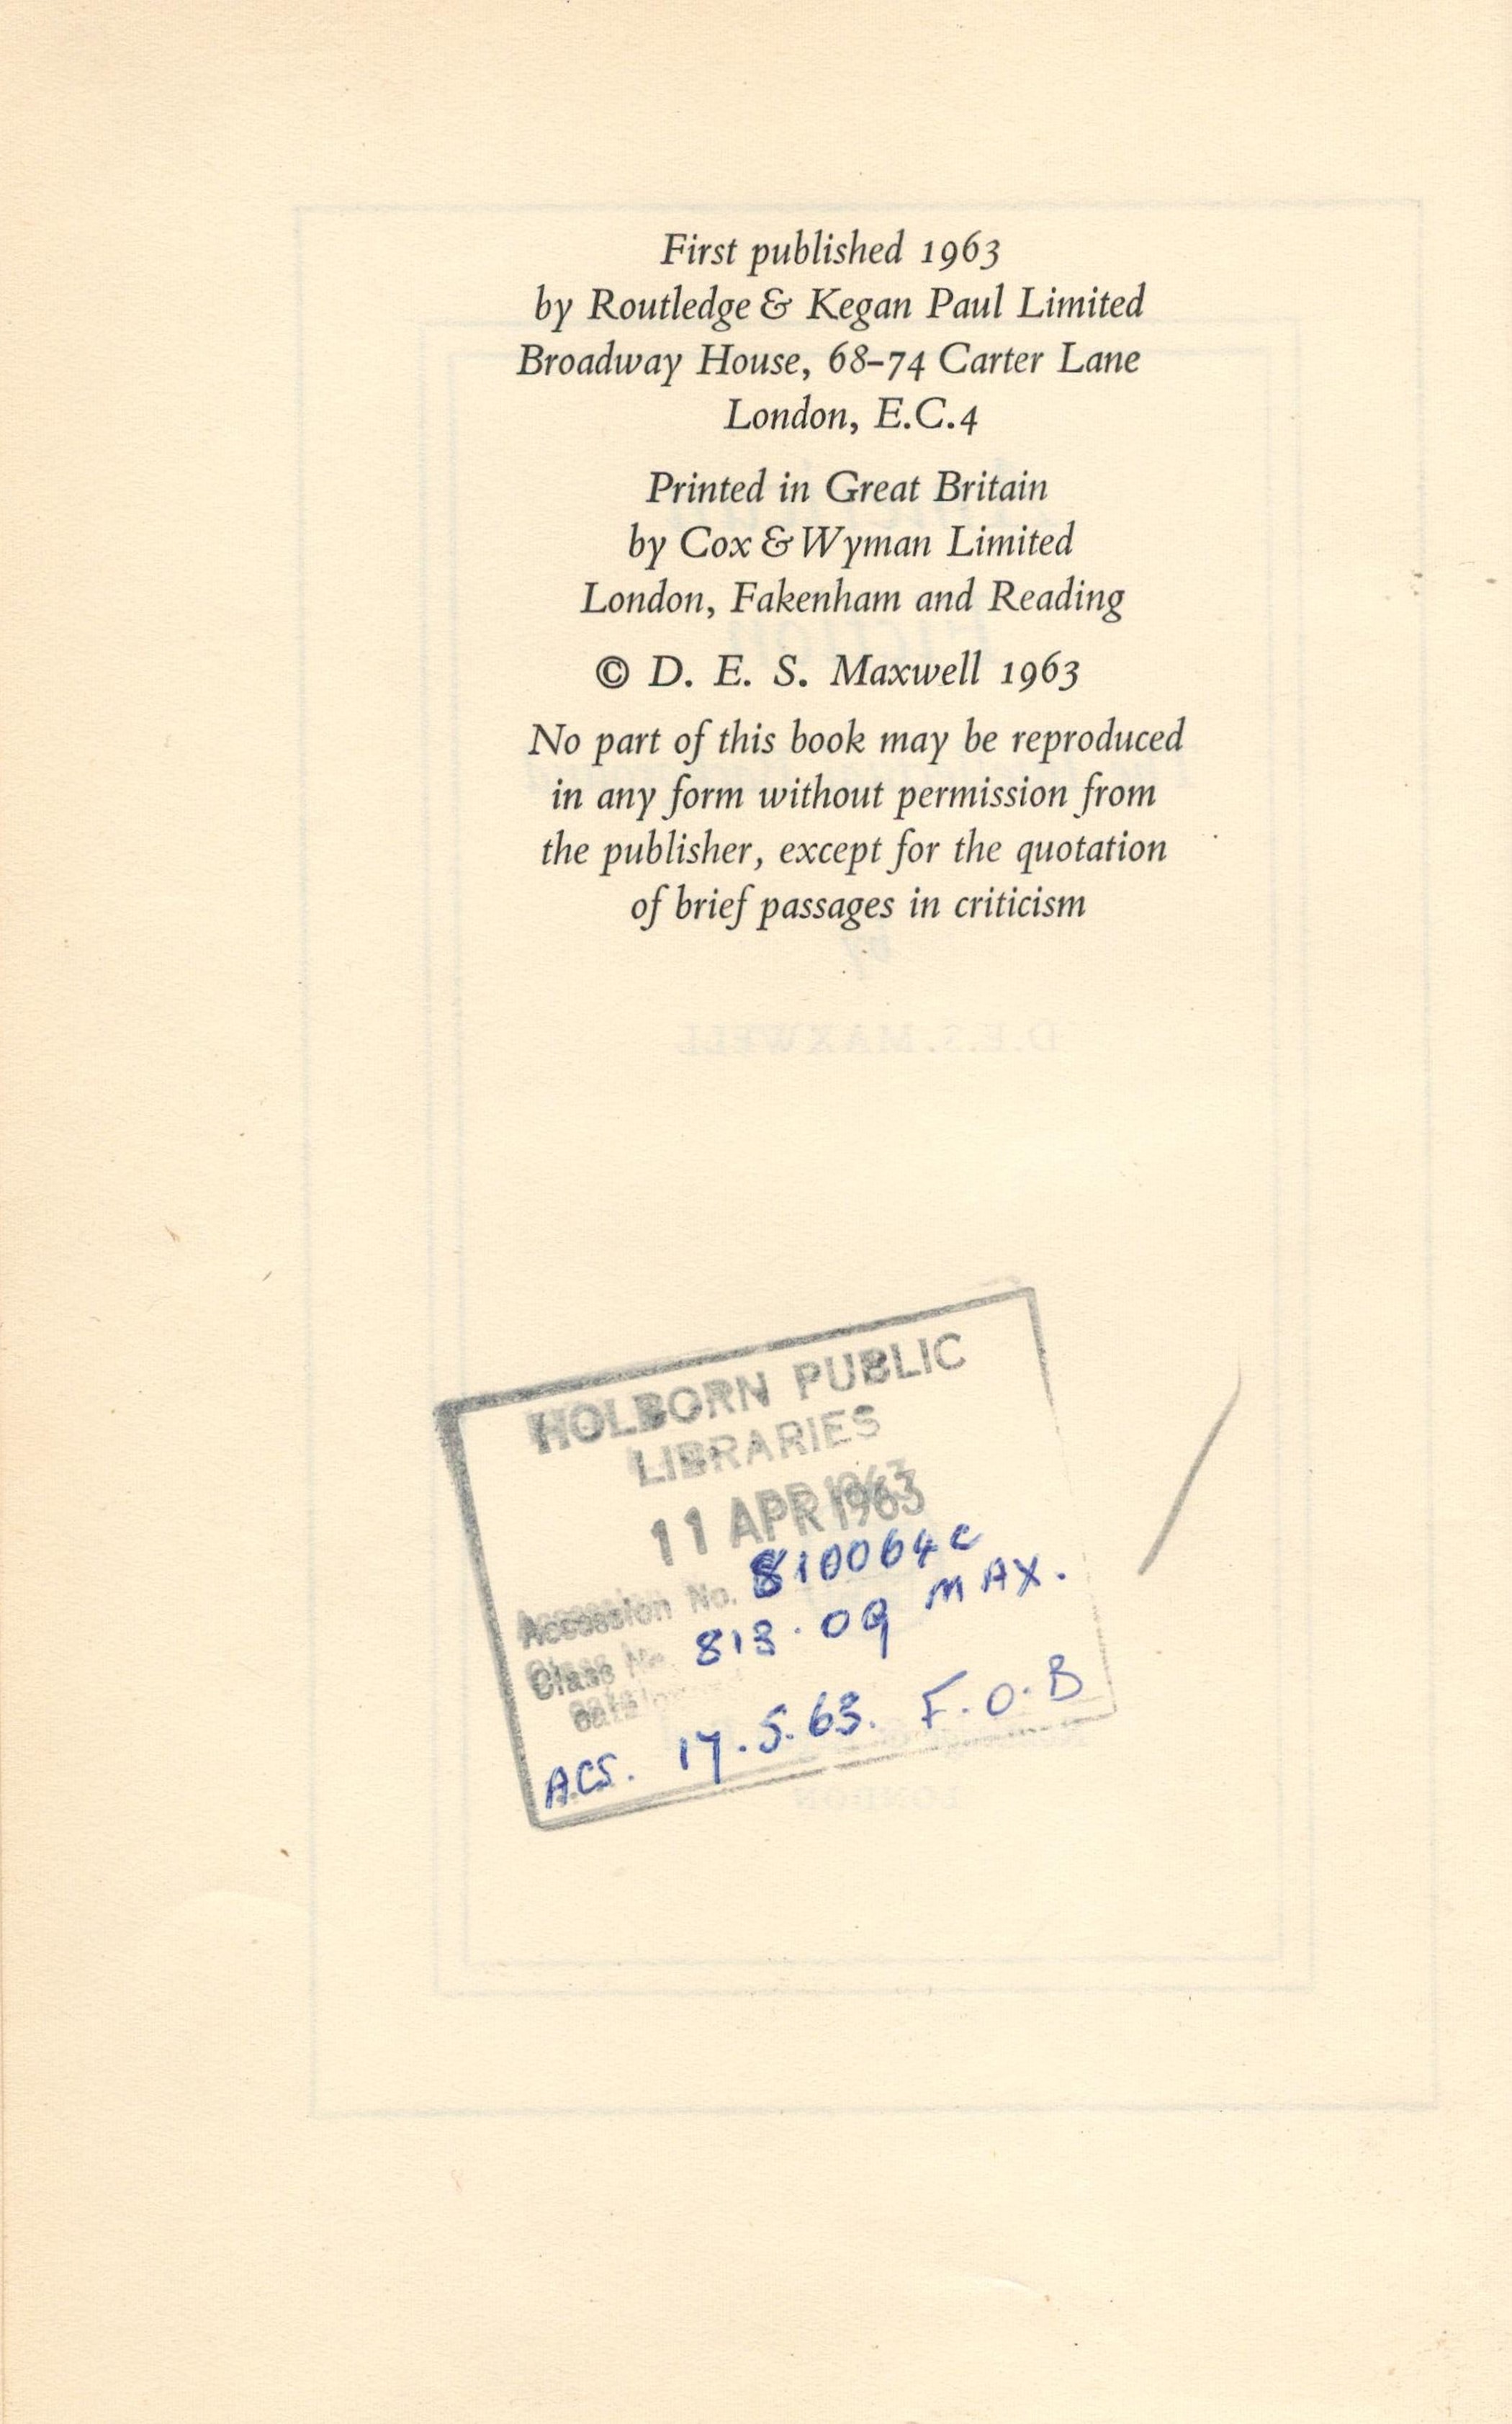 First published 1963
by Routledge & Kegan Paul Limited
Broadway House, 68–74 Carter Lane
London, E.C.4
Printed in Great Britain
by Cox & Wyman Limited
London, Fakenham and Reading
© D. E. S. Maxwell 1963
No part of this book may be reproduced
in any form without permission from
the publisher, except for the quotation
of brief passages in criticism
by
D.E.S. MAXWELL
HOLBORN PUBLIC
LIBRARIES
11 APR 1963
Accession No. 810064c
Class No. 813.09 MAX.
ACS. 17.5.63. F.O.B
LONDON